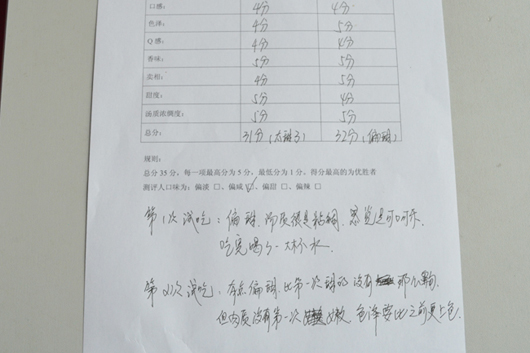 口感： 4分 4分
色泽： 4分 5分
Q感： 4分 4分
香味： 5分 5分
卖相： 4分 5分
甜度： 5分 4分
汤质浓稠度： 5分 5分
总分： 31分（太甜了） 32分（偏甜）
规则：
总分 35 分，每一项最高分为 5 分，最低分为 1 分，得分最高的为优胜者
测评人口味为：偏淡 □、偏咸 □、偏甜 □、偏辣 □
第1次试吃：偏甜，肉质很是粘稠，感觉是可口可乐，
吃完喝了一大杯水
第2次试吃，有点偏甜，比第一次甜的没有那么
但肉质没有第一次嫩，色泽要比之前更上色．